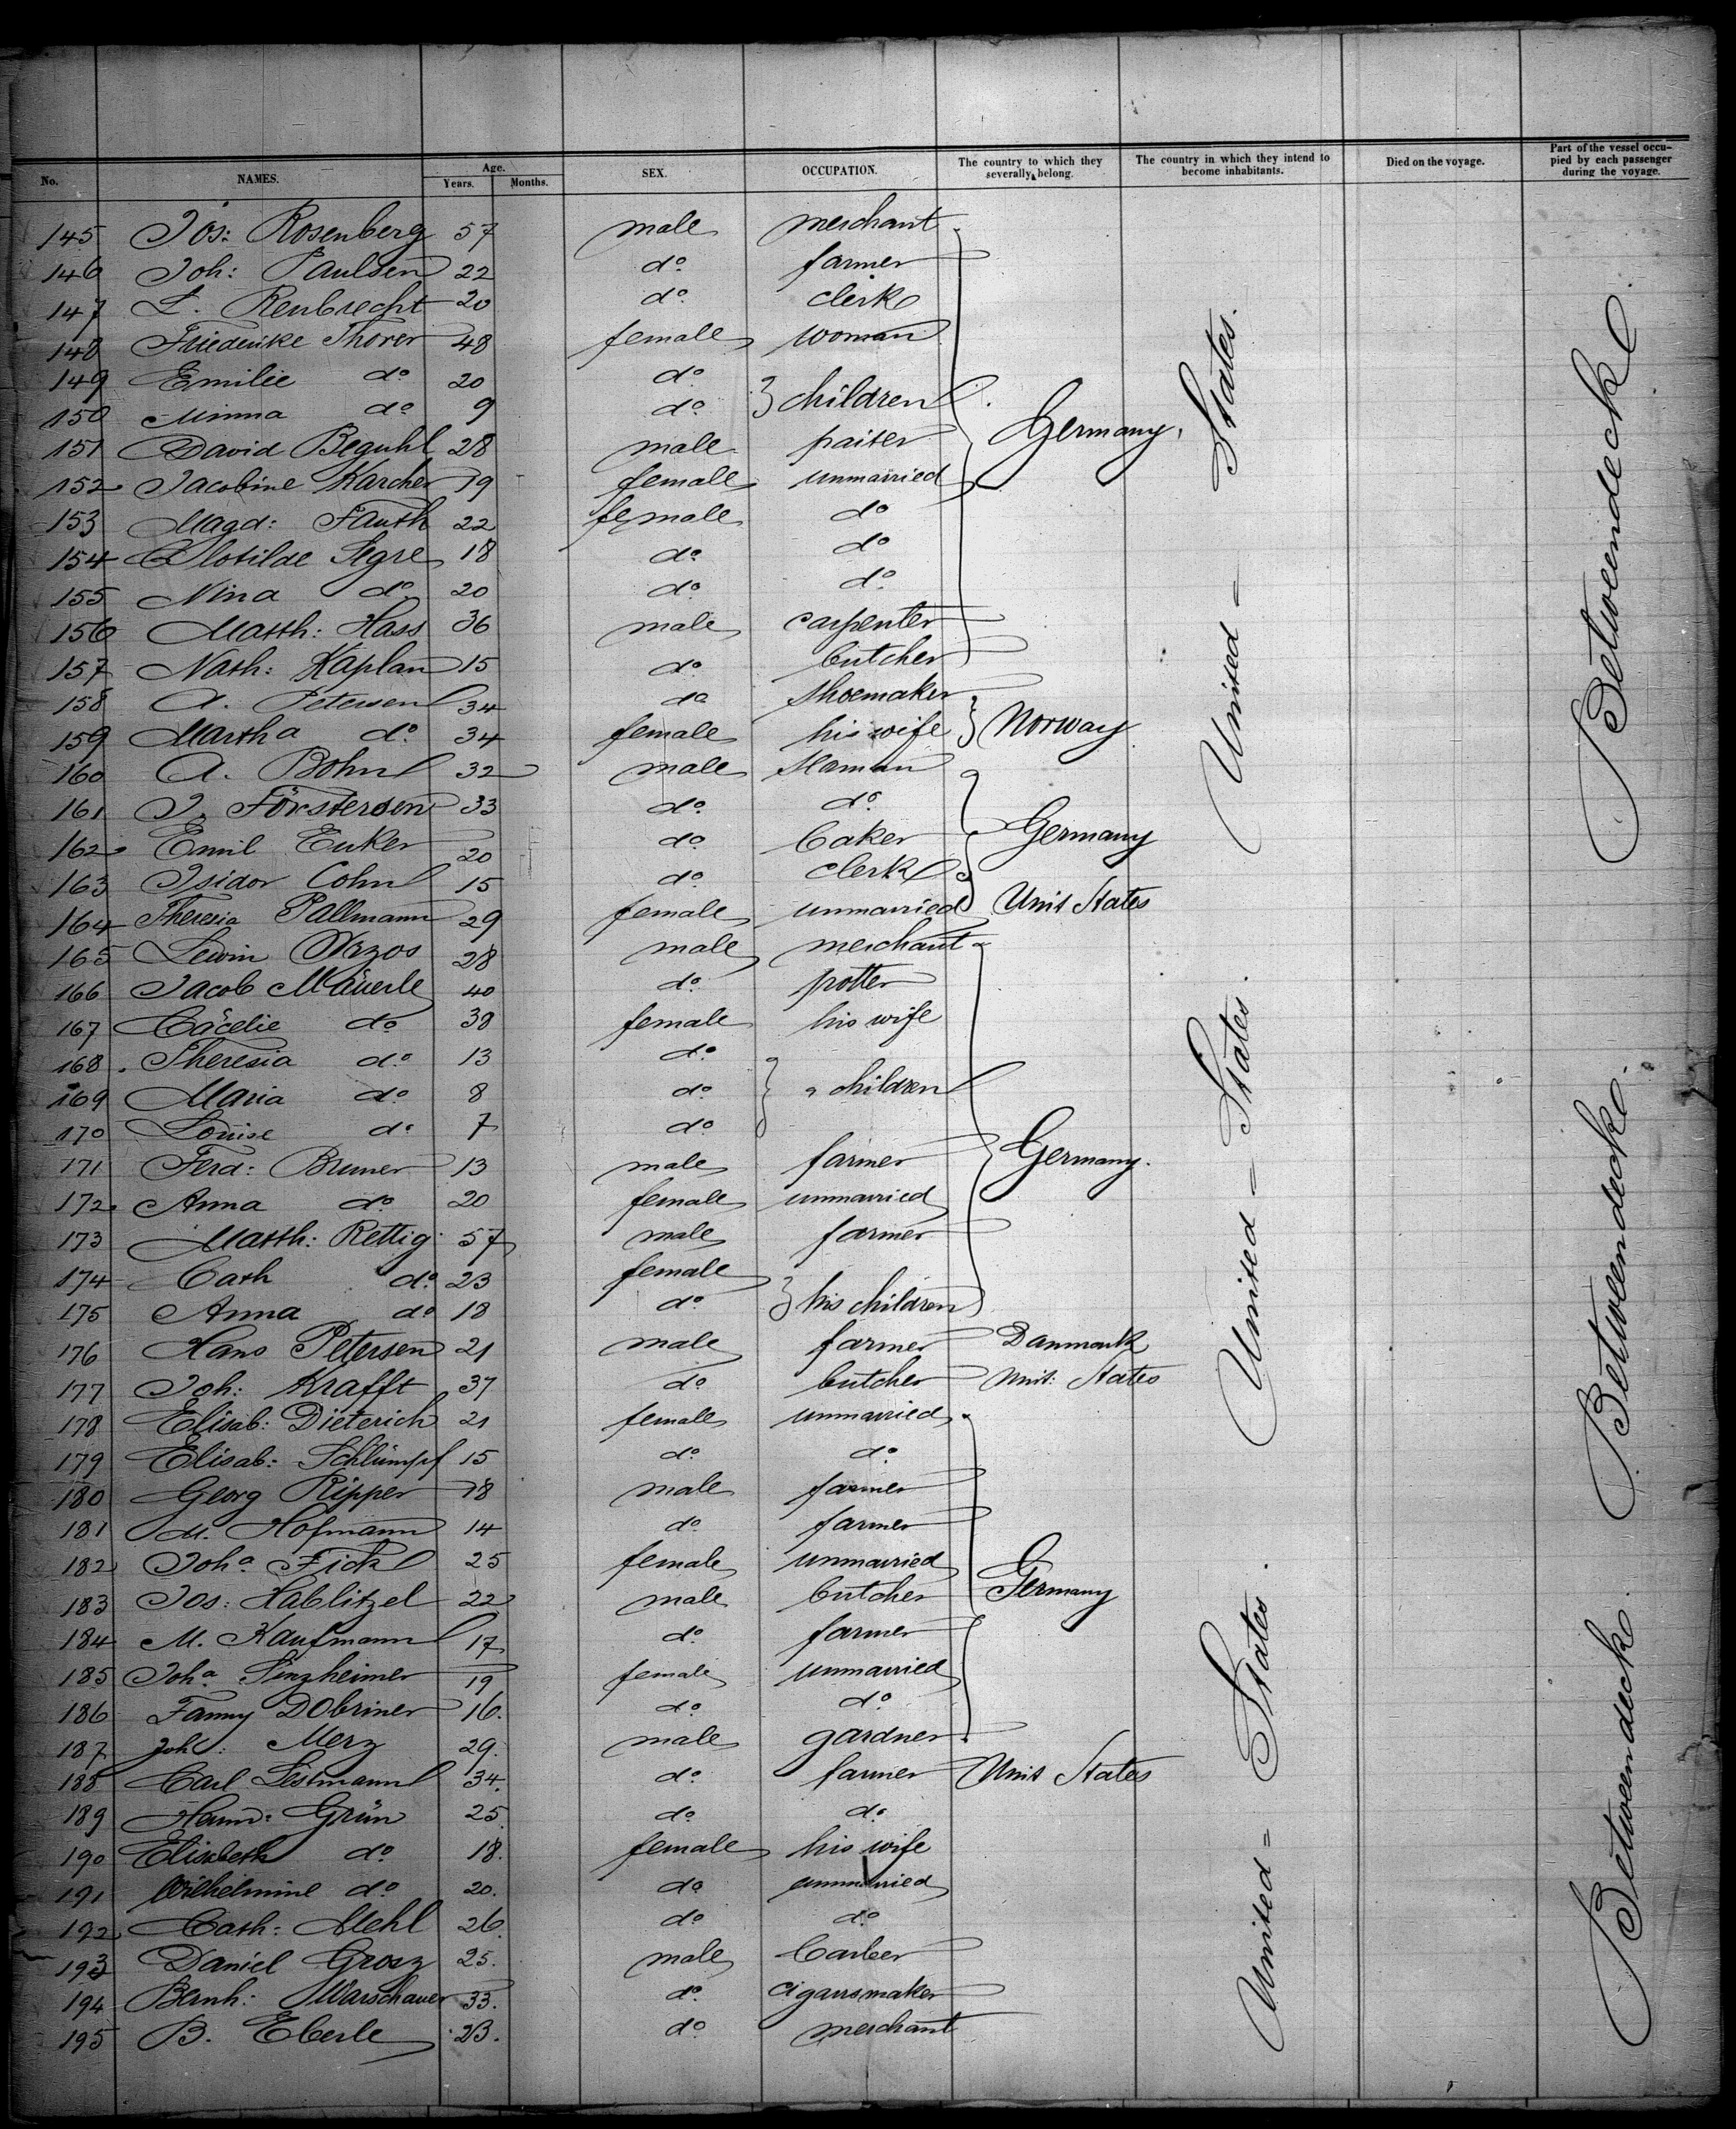 No. NAMES. Age. Years. Months. SEX. OCCUPATION. The country to which they severally belong. The country in which they intend to become inhabitants. Died on the voyage. Part of the vessel occupied by each passenger during the voyage.
145 Jos: Rosenberg 57 male merchant
146 Joh: Paulsen 22 do farmer
147 L. Renbrecht 20 do clerk
148 Friederike Thorer 48 female woman
149 Emilie do 20 do } children
150 Minna do 9 do
151 David Beguhl 28 male paiter Germany.
152 Jacobine Karcher 19 female unmarried
153 Magd: Fauth 22 female do
154 Clotilde Segre 18 do do
155 Nina do 20 do do
156 Matth: Hass 36 male carpenter
157 Nath: Kaplan 15 do butcher
158 A. Petersen 34 do shoemaker
159 Martha do 34 female his wife } Norway
160 A. Bohn 32 male Seaman
161 J. Förstersen 33 do do
162 Emil Euker 20 do baker Germany
163 Isidor Cohn 15 do clerk
164 Theresia Pallmann 29 female unmarried Unit States
165 Lewin 28 male merchant
166 Jacob Mäuerle 40 do potter
167 Cäcelie do 38 female his wife
168 Theresia do 13 do
169 Maria do 8 do } children
170 Louise do 7 do
171 Ferd: Bruner 13 male farmer Germany.
172 Anna do 20 female unmarried
173 Matth: Rettig 57 male farmer
174 Cath do 23 female
175 Anna do 18 do } his children
176 Hans Petersen 21 male farmer Danmark
177 Joh: Krafft 37 do butcher Unit: States
178 Elisab: Dieterich 21 female unmarried
179 Elisab: Schlumpf 15 do do
180 Georg Ripper 18 male farmer
181 M. Hofmann 14 do farmer
182 Joha Fick 25 female unmarried
183 Jos: Hablitzel 22 male butcher Germany
184 M. Kaufmann 17 do farmer
185 Joha Sinzheimer 19 female unmarried
186 Fanny Dobriner 16. do do
187 Joh: Merz 29. male gardner
188 Carl Lestmann 34. do farmer Unit States
189 Herm: Grün 25. do do
190 Elisabeth do 18. female his wife
191 Wilhelmine do 20. do unmarried
192 Cath: Mehl 26. do do
193 Daniel Grosz 25. male barber
194 Bernh: Warschauer 33. do cigarsmaker
195 B. Eberle 23. do merchant
United = States.
United = States.
United = States.
Betweendeck.
Betweendeck.
Betweendeck.